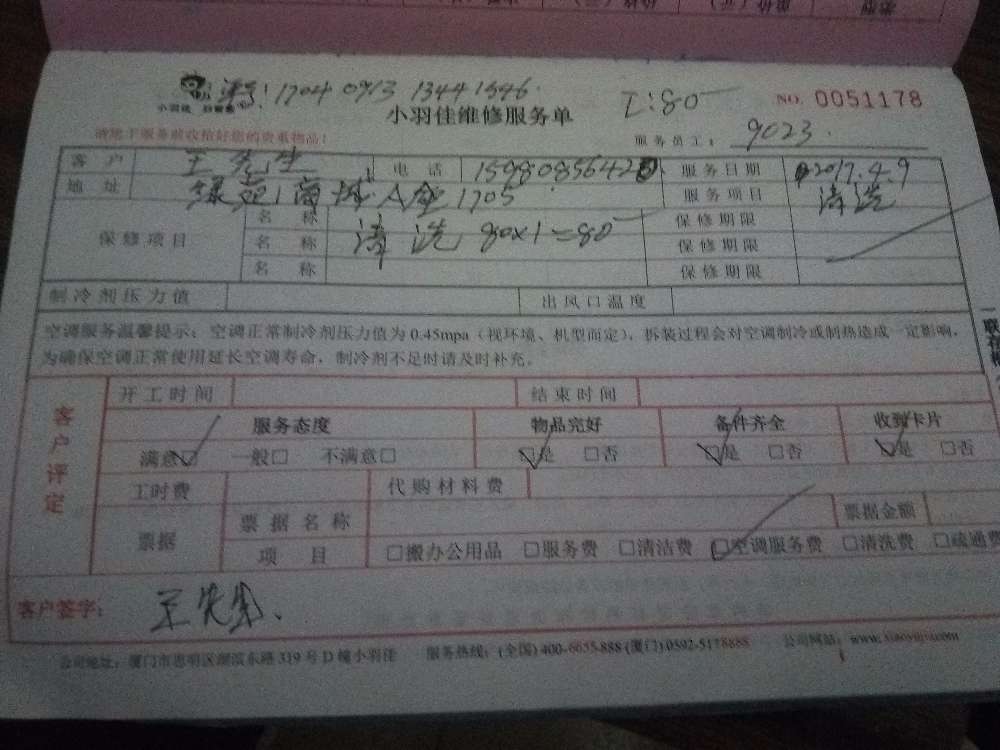 单号:1704 0913 1344 1546 工:80
小羽佳 NO. 0051178
小羽佳维修服务单
请地下服务前收拾好您的贵重物品! 服务员工: 9023.
客户 王先生 电话 15980856428 服务日期 2017.4.9
地址 1705 服务项目 清洗
保修项目 名称 保修期限
名称 清洗 80×1=80 保修期限
名称 保修期限
制冷剂压力值 出风口温度
空调服务温馨提示:空调正常制冷剂压力值为0.45mpa(视环境、机型而定),拆装过程会对空调制冷或制热造成一定影响,
为确保空调正常使用延长空调寿命,制冷剂不足时请及时补充。
客户评定
开工时间 结束时间
服务态度 物品完好 备件齐全 收到卡片
满意□ 一般□ 不满意□ □是 □否 □是 □否 □是 □否
工时费 代购材料费
票据 票据名称 票据金额
项目 □搬办公用品 □服务费 □清洁费 □空调服务费 □清洗费 □疏通费
客户签字: 王先生.
公司地址:厦门市思明区湖滨东路319号D幢小羽佳 服务热线:(全国)400-6655-888(厦门)0592-5178888 公司网站:www.xiaoyujia.com